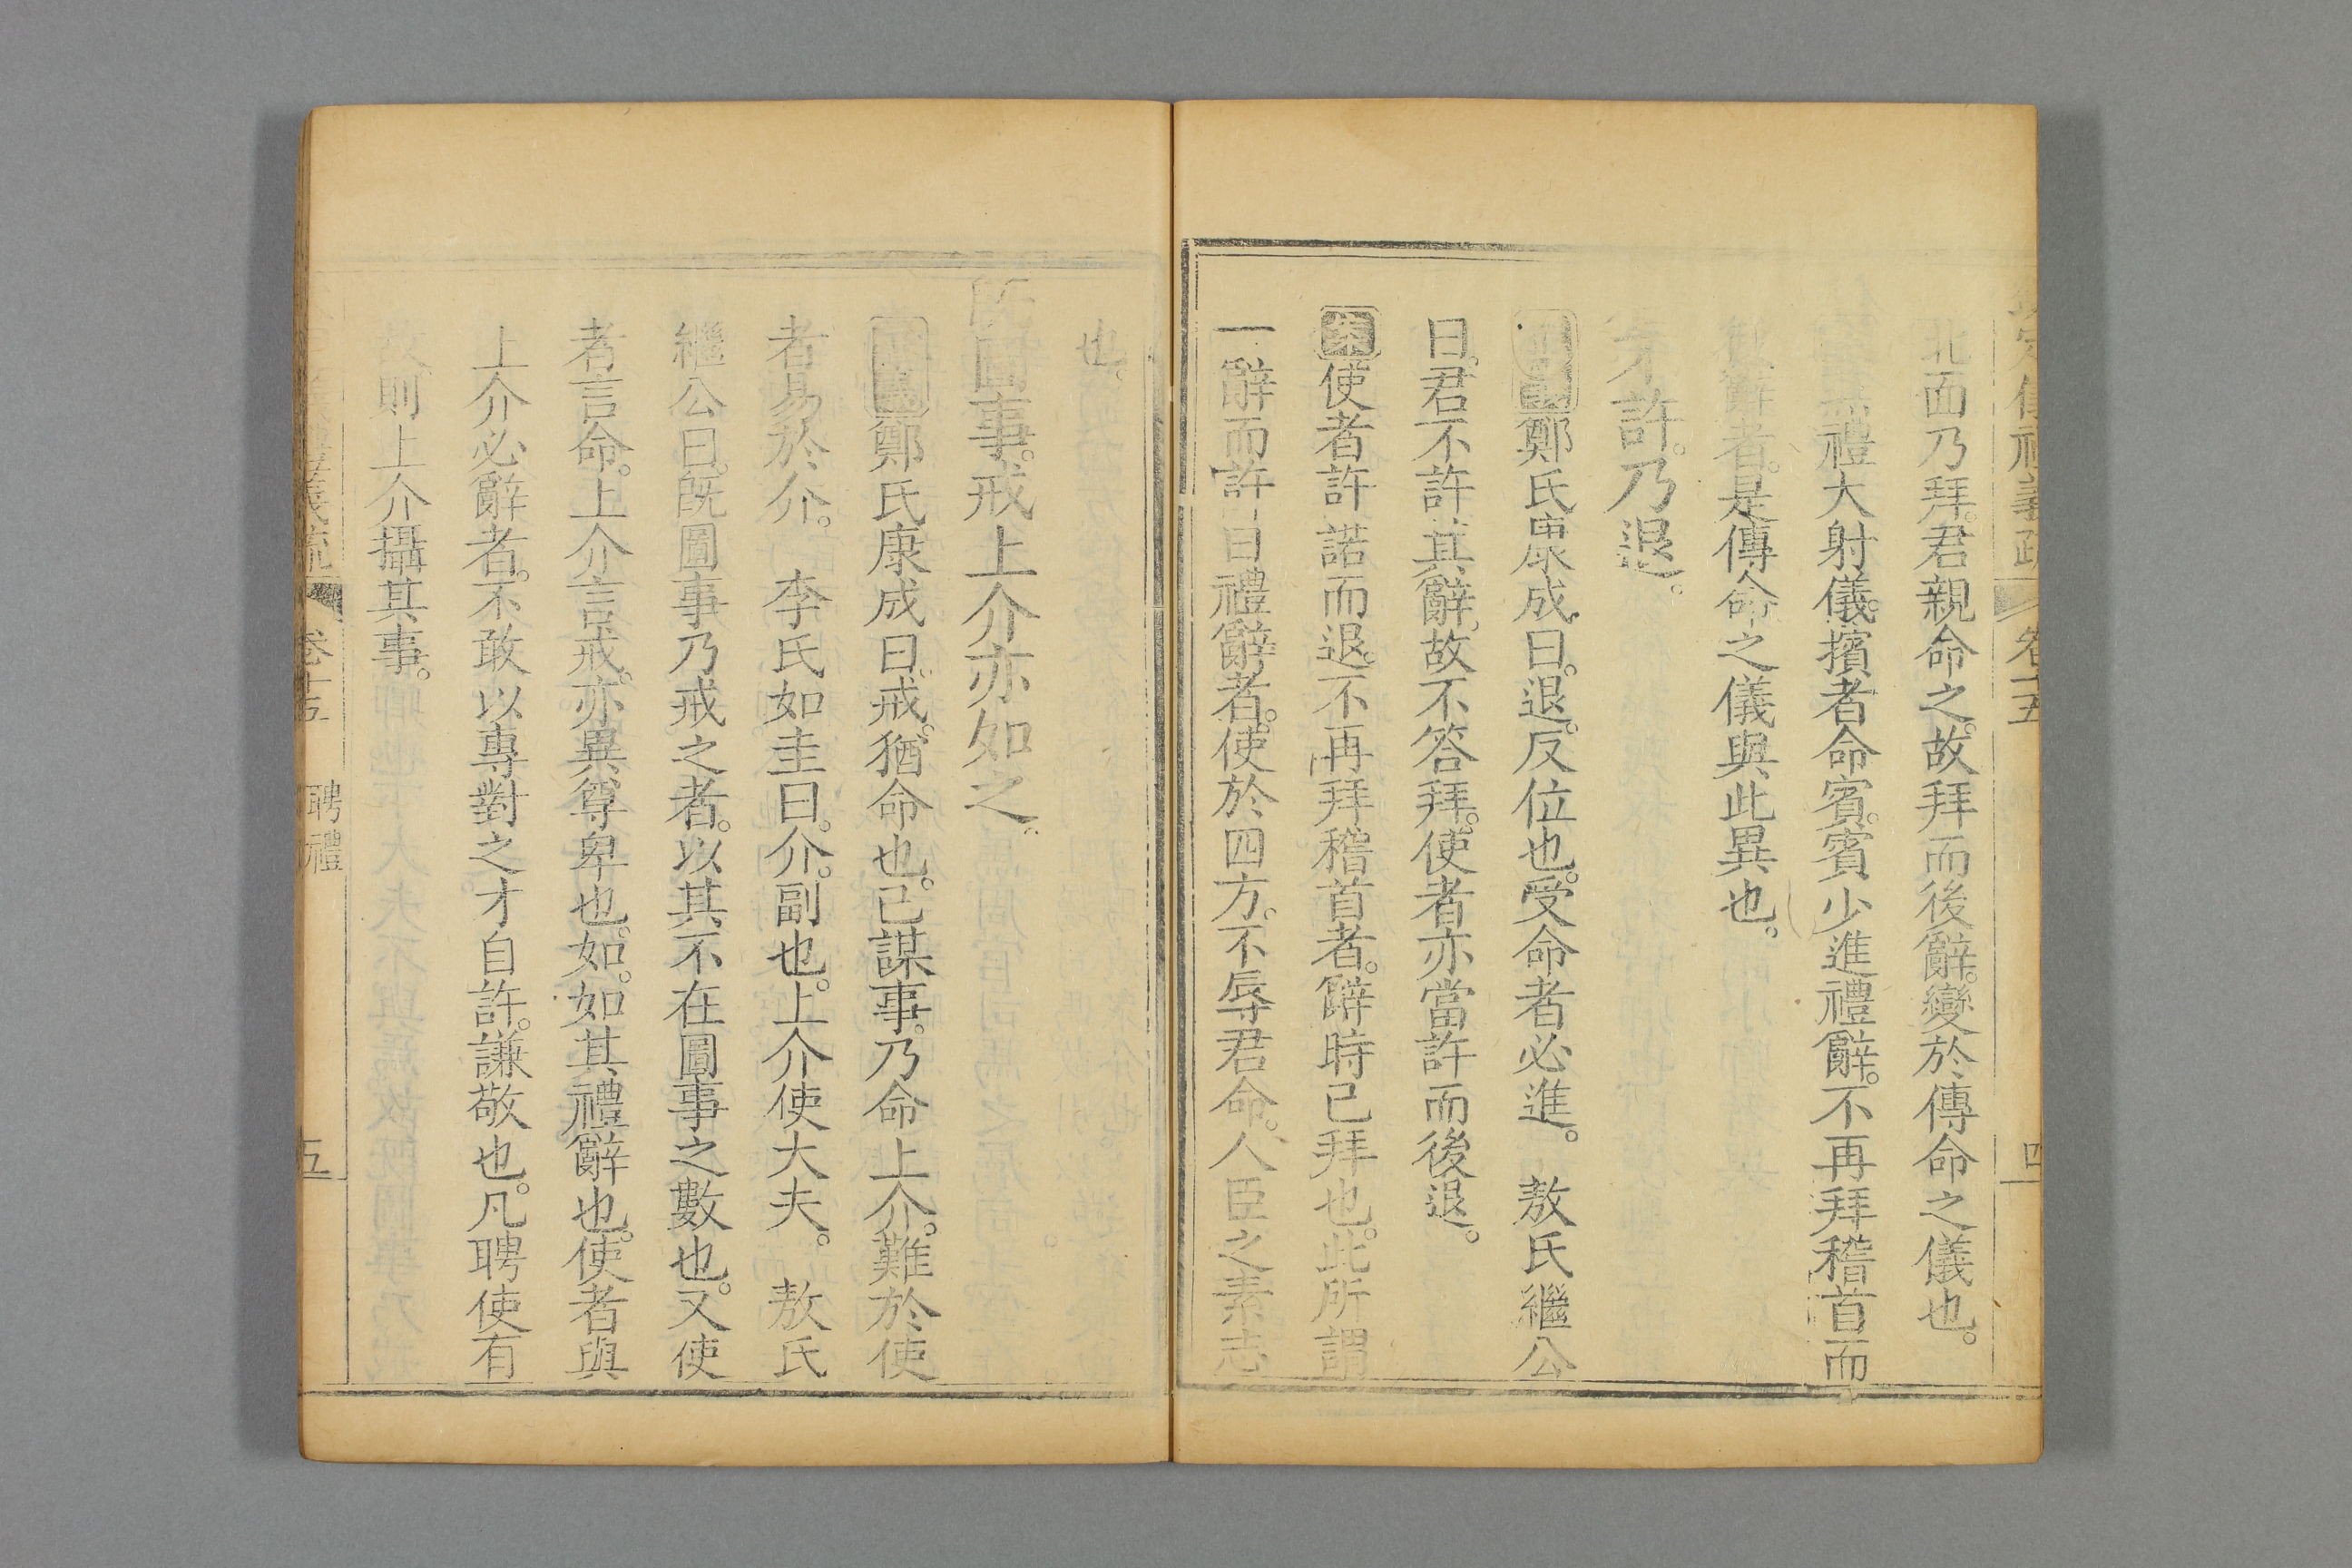 欽定儀禮義疏 卷十五 四
北面乃拜君親命之故拜而後辭變於傳命之儀也
燕禮大射儀擯者命賓賓少進禮辭不再拜稽首而
辭者是傳命之儀與此異也
不許乃退
鄭氏康成曰退反位也受命者必進 敖氏繼公
曰君不許其辭故不答拜使者亦當許而後退
案使者許諾而退不再拜稽首者辭時已拜也此所謂
一辭而許曰禮辭者使於四方不辱君命人臣之素志
也
既圖事戒上介亦如之
鄭氏康成曰戒猶命也已謀事乃命上介難於使
者易於介 李氏如圭曰介副也上介使大夫 敖氏
繼公曰既圖事乃戒之者以其不在圖事之數也又使
者言命上介言戒亦異尊卑也如如其禮辭也使者與
上介必辭者不敢以專對之才自許謙敬也凡聘使有
故則上介攝其事
儀禮義疏 卷十五 聘禮 五